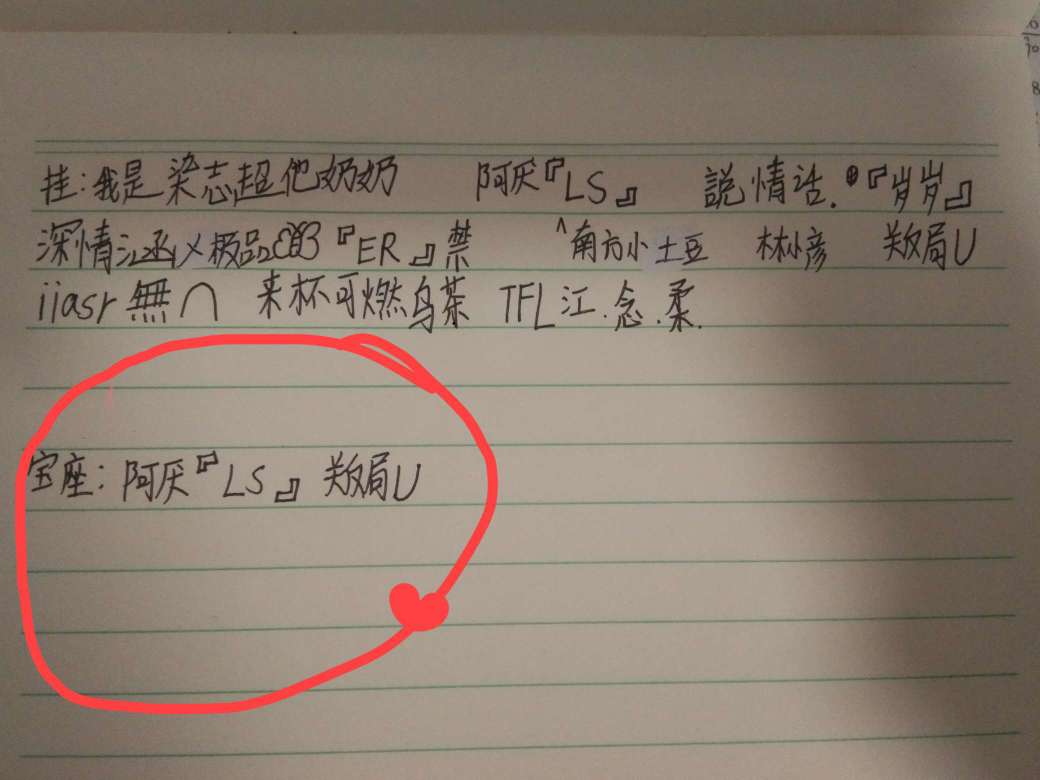 挂:我是梁志超他奶奶 阿厌『LS』 説情话.⊕『岁岁』
深情江函乂极品 『ER』禁 ^南方小土豆 林小彦 郑局U
iiasr無∩ 来杯可燃乌茶 TFL江.念.柔.
宝座:阿厌『LS』 郑局U